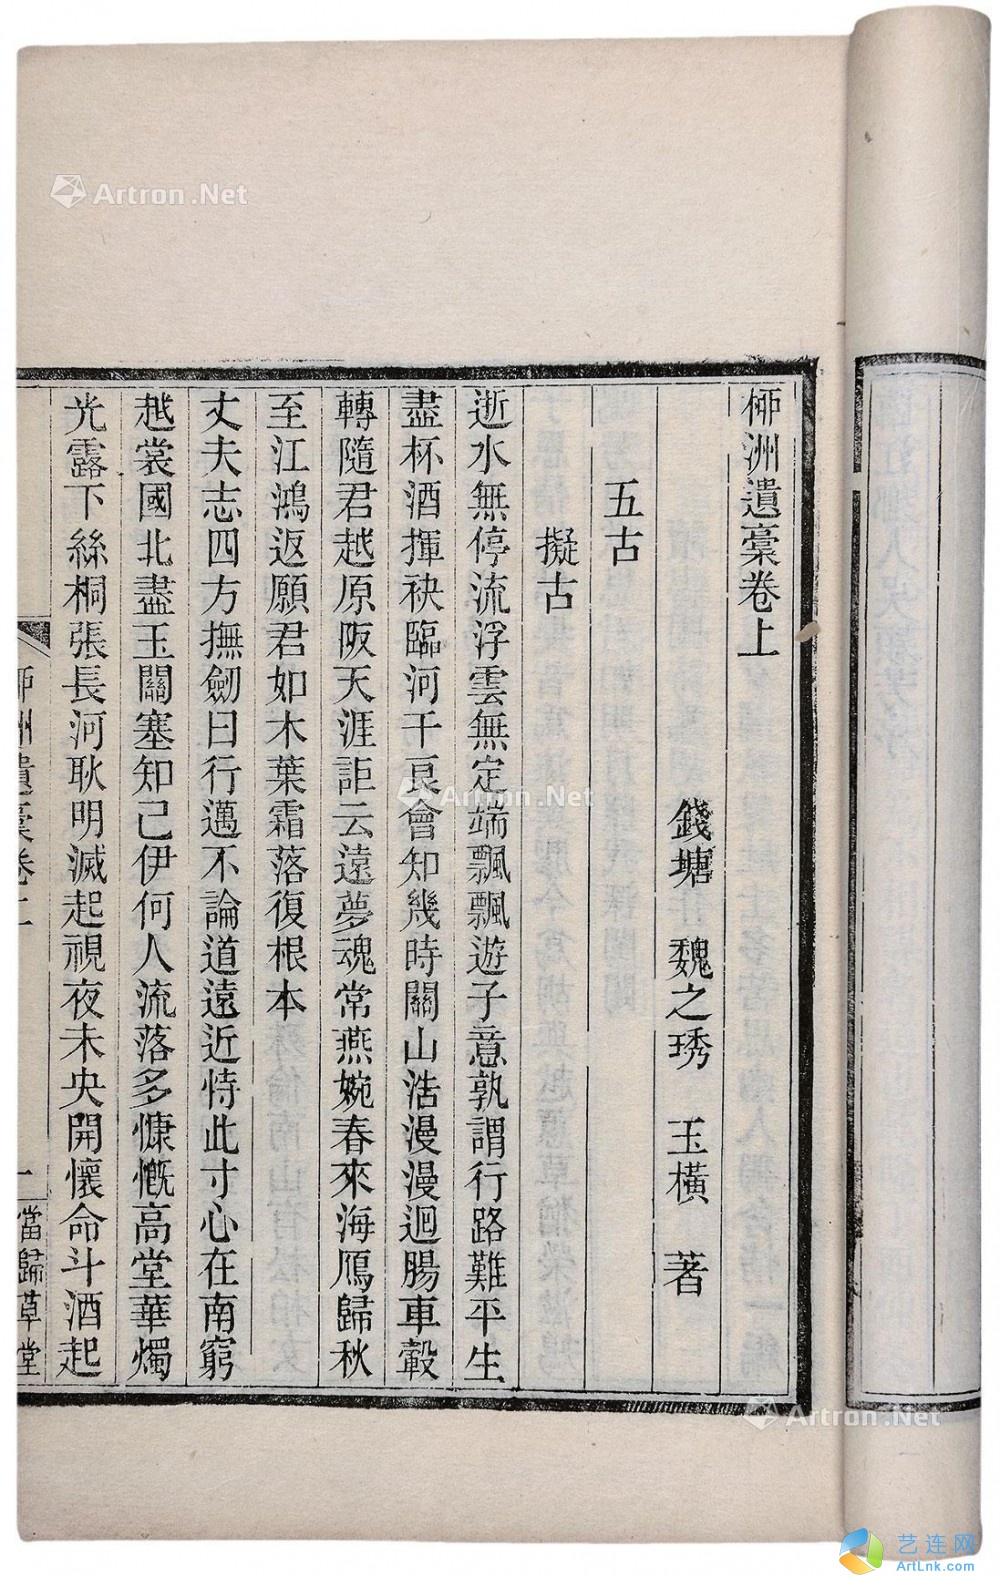 柳洲遺稾卷上
錢塘 魏之琇 玉橫 著
五古
擬古
逝水無停流浮雲無定端飄飄遊子意孰謂行路難平生
盡杯酒揮袂臨河干良會知幾時關山浩漫漫迴腸車轂
轉隨君越原阪天涯詎云遠夢魂常燕婉春來海鴈歸秋
至江鴻返願君如木葉霜落復根本
丈夫志四方撫劒日行邁不論道遠近恃此寸心在南窮
越裳國北盡玉關塞知己伊何人流落多慷慨高堂華燭
光露下絲桐張長河耿明滅起視夜未央開懷命斗酒起
柳州遺稾卷上
一
當歸草堂
Artron.Net
Artron.Net
Artron.Net
艺连网
ArtLnk.com